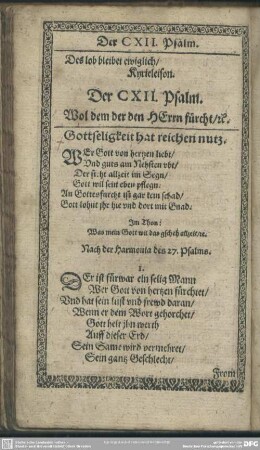 Der CXII. Psalm.
Des lob bleibet ewiglich/
Kyrieleison.
Der CXII. Psalm.
Wol dem der den HErrn fürcht/ꝛc.
Gottseligkeit hat reichen nutz.
WEr Gott von hertzen liebt/
Vnd guts am Nehsten vbt/
Der steht allzeit im Segn/
Gott wil sein eben pflegn.
An Gottesfurcht ist gar kein schad/
Gott lohnt jhr hie vnd dort mit Gnad.
Im Thon:
Was mein Gott wil das gscheh allzeit/ꝛc.
Nach der Harmonia des 27. Psalms.
1.
DEr ist fürwar ein selig Mann
Wer Gott von hertzen fürchtet/
Vnd hat sein lust vnd frewd daran/
Wenn er dem Wort gehorchet/
Gott helt jhn werth
Auff dieser Erd/
Sein Same wird vermehret/
Sein gantz Geschlecht/
From
DFG